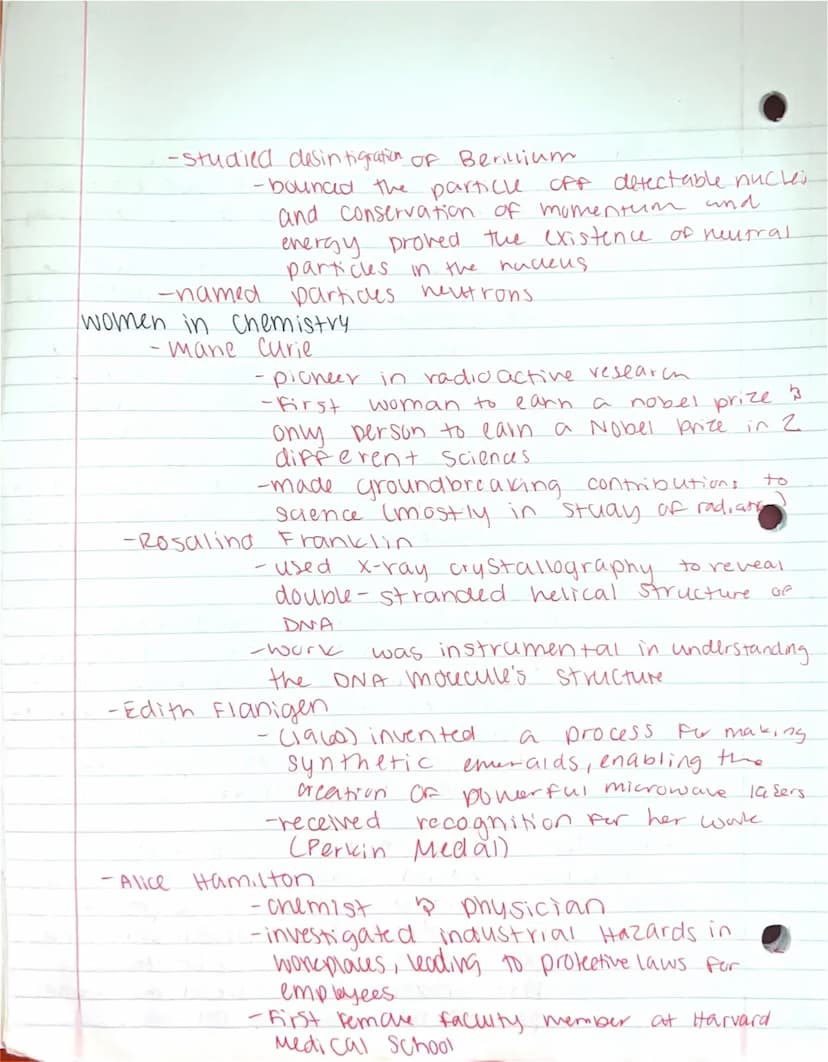 - studied desintigration of Berillium
- bounced the particle off detectable nuclei
and conservation of momentum and
energy proved the existence of neutral
particles in the nucleus
- named particles neutrons
women in chemistry
- Marie Curie
- pioneer in radioactive research
- First woman to earn a nobel prize &
only person to earn a Nobel Prize in 2
different sciences
- made groundbreaking contributions to
science (mostly in study of radiation)
- Rosalind Franklin
- used x-ray crystallography to reveal
double-stranded helical structure of
DNA
- work was instrumental in understanding
the DNA molecule's structure
- Edith Flanigen
- (1960) invented a process for making
synthetic emeralds, enabling the
creation of powerful microwave lasers
- received recognition for her work
(Perkin Medal)
- Alice Hamilton
- chemist & physician
- investigated industrial Hazards in
workplaces, leading to protective laws for
employees
- First female faculty member at Harvard
Medical School